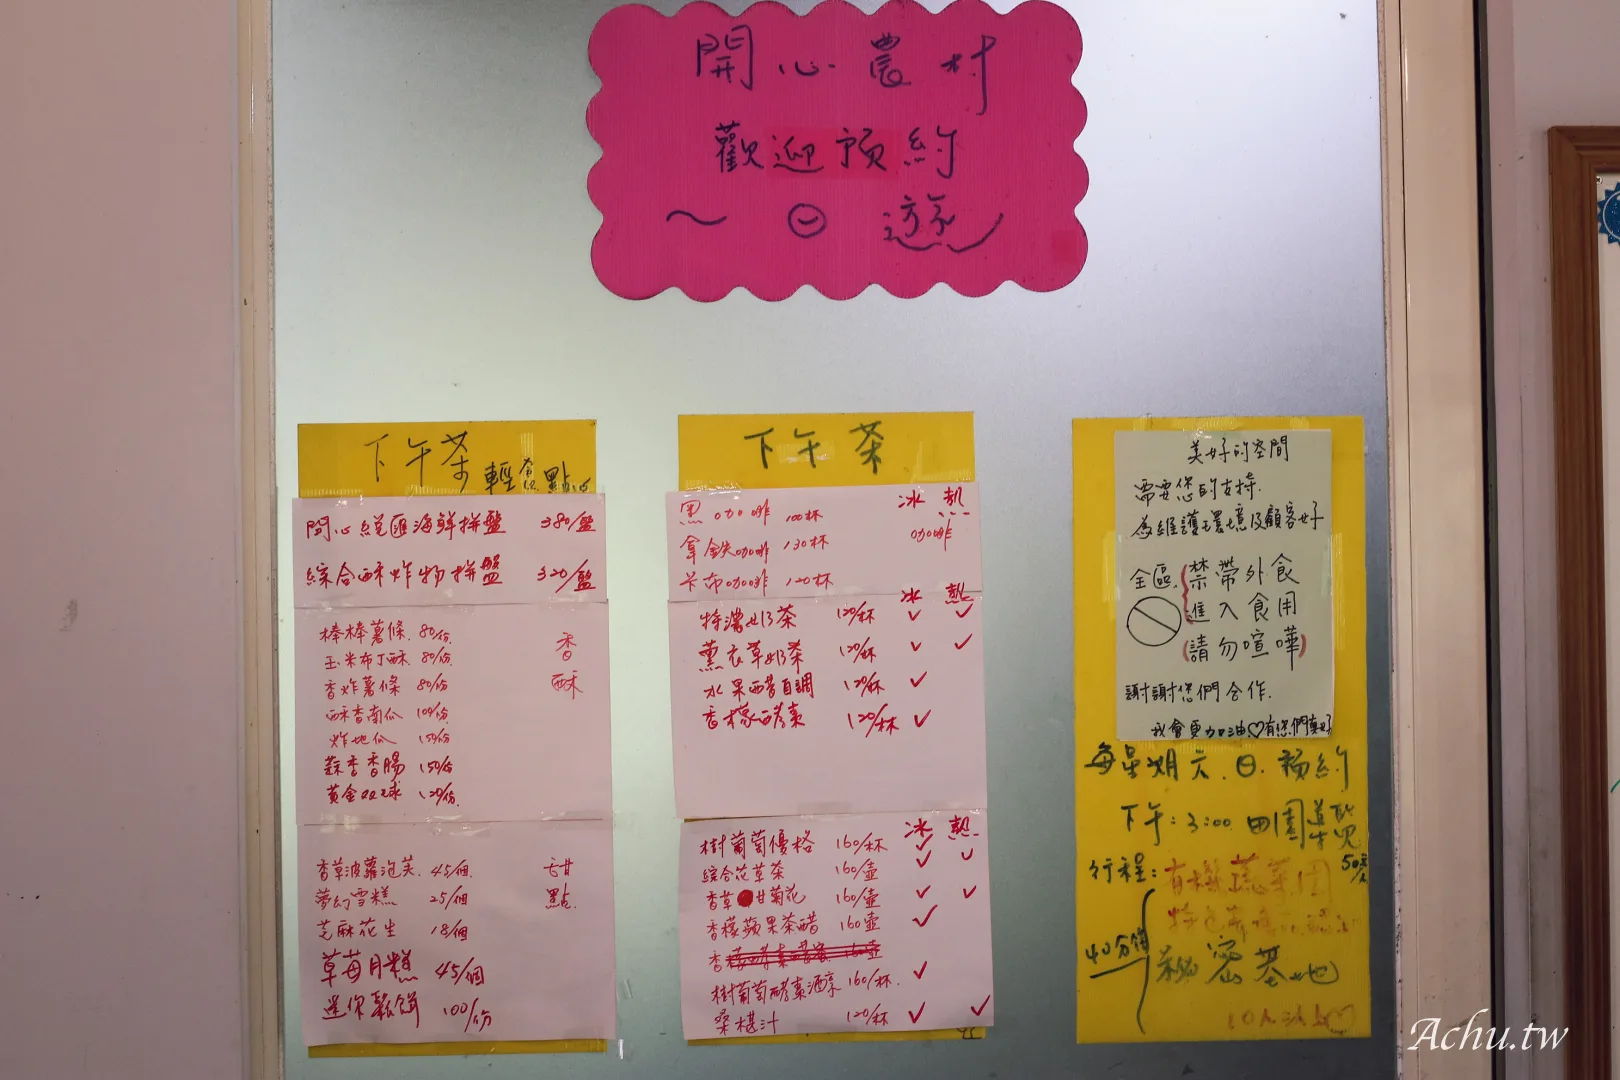 開心農村
歡迎預約
~ 遊
下午茶
輕食點心
開心綜匯海鮮拼盤 380/盤
綜合酥炸物拼盤 320/盤
香酥
棒棒薯條 80/份
玉米布丁酥 80/份
香炸薯條 80/份
酥香南瓜 100/份
炸地瓜 150/份
蒜香香腸 150/份
黃金QQ球 120/份
甜點
香草波蘿泡芙 45/個
夢幻雪糕 25/個
芝麻花生 18/個
草莓月糕 45/個
迷你鬆餅 100/份
下午茶
冰 熱
黑咖啡 100杯
咖啡
拿鉄咖啡 130杯
卡布咖啡 120杯
冰 熱
特濃奶茶 120/杯 ✓ ✓
薰衣草奶茶 120/杯 ✓ ✓
水果醋自調 120/杯 ✓
香檬酵素 120/杯 ✓
冰 熱
樹葡萄優格 160/杯 ✓
綜合花草茶 160/壺 ✓ ✓
香草甘菊花 160/壺 ✓ ✓
香檬蘋果茶醋 160壺 ✓
樹葡萄酵素酒醇 160/杯. ✓
桑椹汁 120/杯 ✓ ✓
美好的空間
需要您的支持.
為維護環境及顧客好
全區
禁帶外食
進入食用
(請勿喧嘩)
謝謝您們合作.
我會更加油♡有您們真好
每星期六.日.預約
下午:3:00 田園導覽
50元/人
行程: 有機蔬菜園
40分鐘
秘密基地
10人以上♡
Achu.tw